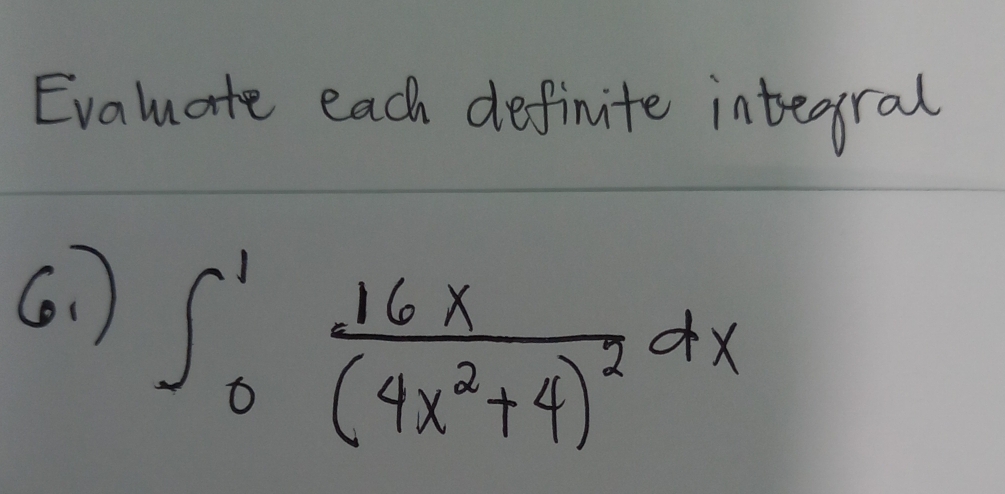 Evaluate each definite integral
6.) ∫₀¹ 16x/(4x²+4)² dx